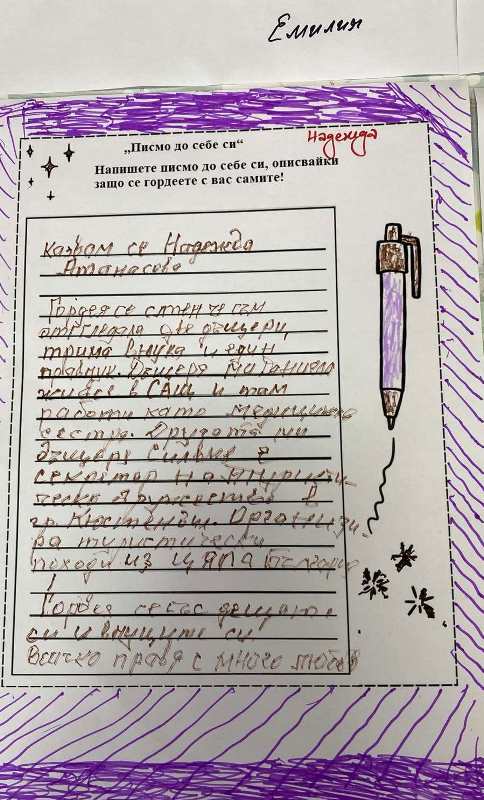 Емилия
Надежда
„Писмо до себе си“
Напишете писмо до себе си, описвайки
защо се гордеете с вас самите!
Казвам се Надежда
Атанасова
Гордея се с тен че съм
отгледала две дъщери,
трима внука и един
правнук. Дъщеря ми Даниела
живее в САЩ и там
работи като медицинска
сестра. Другата ми
дъщеря Силвия е
секретар на Туристи-
ческо дружество в
гр. Кюстендил. Организи-
ра туристически
походи из цяла България
!
Гордея се със децата
си и внуците си.
Всичко правя с много любов